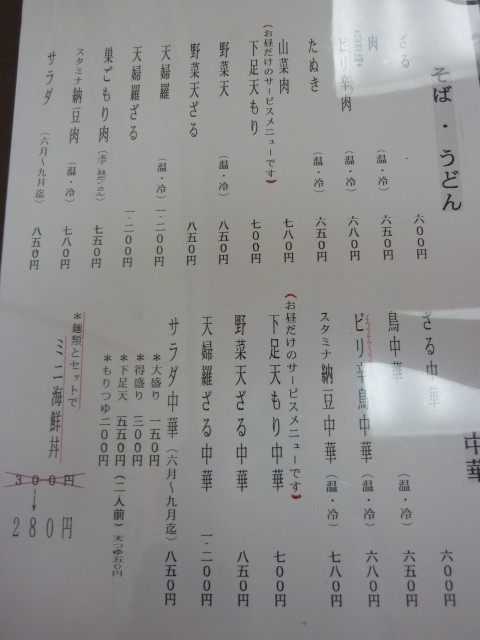 そば・うどん
ざる 六〇〇円
肉 （温・冷） 六五〇円
ピリ辛肉 （温・冷） 六八〇円
たぬき （温・冷） 六五〇円
山菜肉 七八〇円
下足天もり 七〇〇円
（お昼だけのサービスメニューです）
野菜天 （温・冷） 八五〇円
野菜天ざる 八五〇円
天婦羅 （温・冷） 一.二〇〇円
天婦羅ざる 一.二〇〇円
巣ごもり肉 七五〇円
スタミナ納豆肉 （温・冷） 七八〇円
サラダ （六月〜九月迄） 八五〇円
中華
ざる中華 六〇〇円
鳥中華 （温・冷） 六五〇円
ピリ辛鳥中華 （温・冷） 六八〇円
スタミナ納豆中華 （温・冷） 七八〇円
下足天もり中華 七〇〇円
（お昼だけのサービスメニューです）
野菜天ざる中華 八五〇円
天婦羅ざる中華 一.二〇〇円
サラダ中華 （六月〜九月迄） 八五〇円
＊大盛り 一五〇円
＊得盛り 三〇〇円
＊下足天 五五〇円（二人前） 天つゆ五〇円
＊もりつゆ二〇〇円
＊麺類とセットで
ミニ海鮮丼
３００円
→２８０円